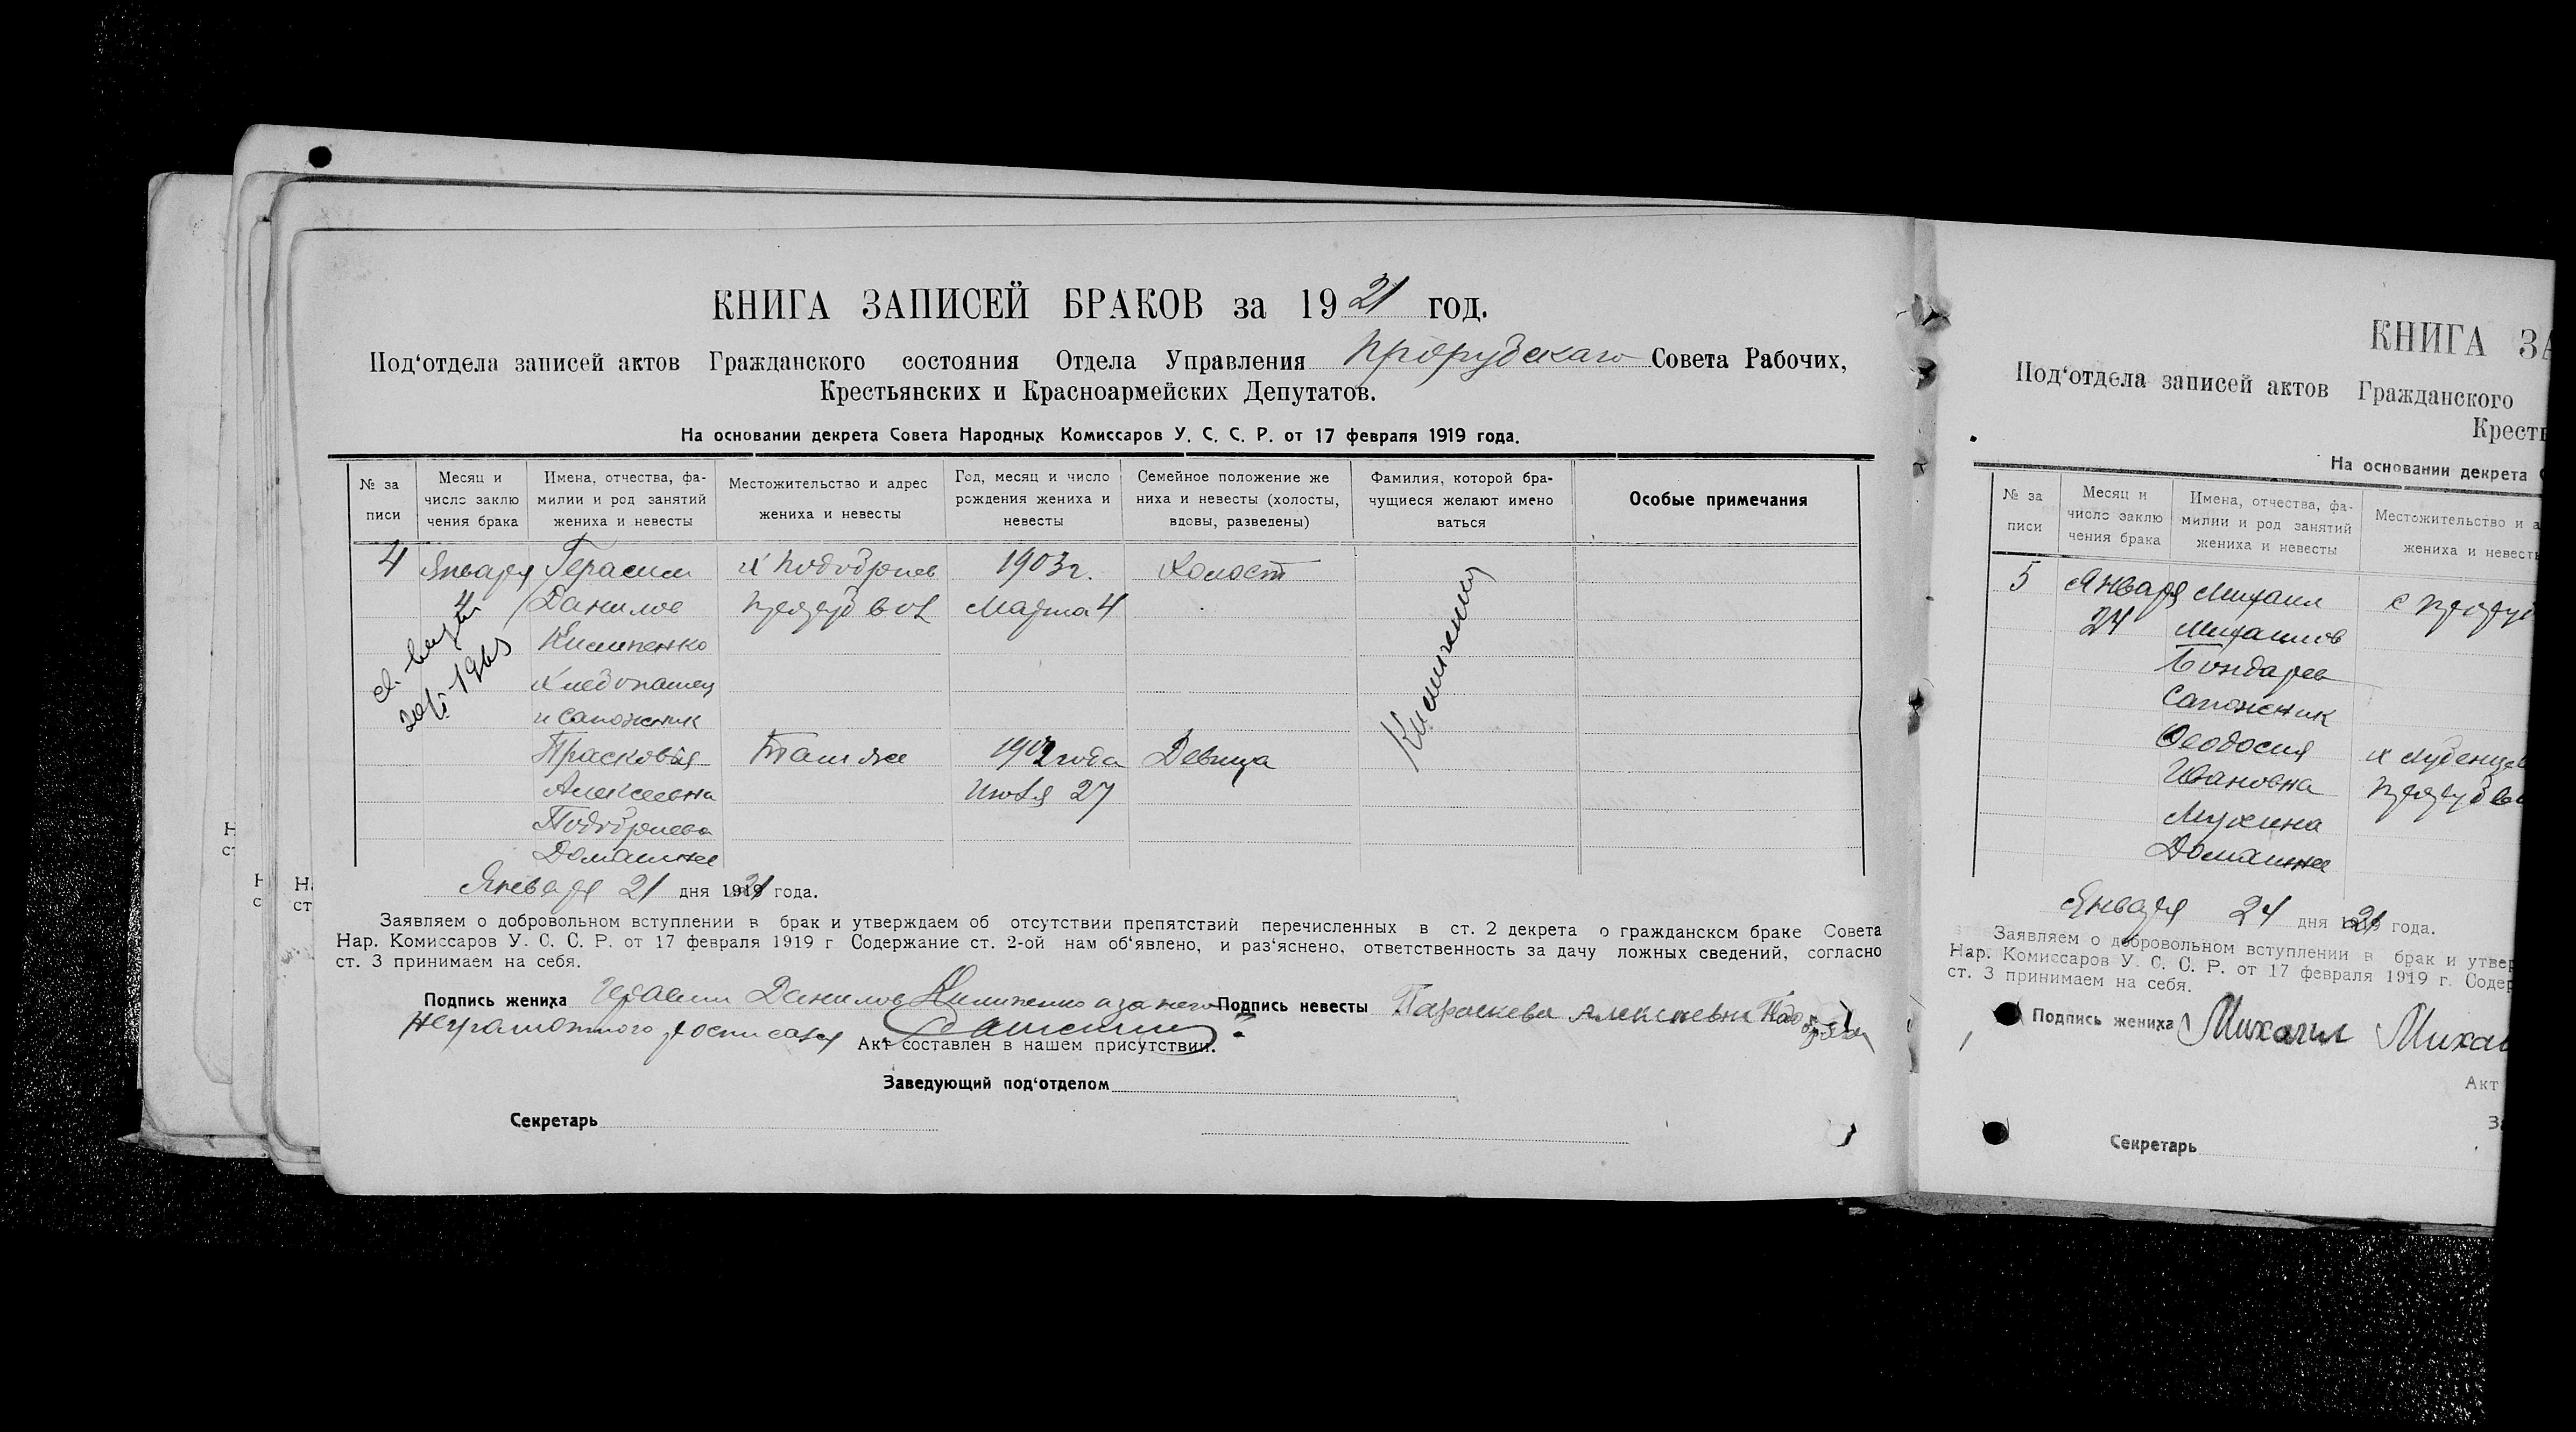 КНИГА ЗАПИСЕЙ БРАКОВ за 1921 год.
Под'отдела записей актов Гражданского состояния Отдела Управления Прорубскаго Совета Рабочих,
Крестьянских и Красноармейских Депутатов.
На основании декрета Совета Народных Комиссаров У. С. С. Р. от 17 февраля 1919 года.
№ за писи
Месяц и число заклю чения брака
Имена, отчества, фа- милии и род занятий жениха и невесты
Местожительство и адрес жениха и невесты
Год, месяц и число рождения жениха и невесты
Семейное положение же ниха и невесты (холосты, вдовы, разведены)
Фамилия, которой бра- чущиеся желают имено ваться
Особые примечания
4 Января Герасим 1903 г. Холост
Данилов Марта 4
Хлебопашец
и сапожник
Прасковья Там же года Девица
Алексеевна Июля 27
Домашнее
Января 21 дня 1921 года.
Заявляем о добровольном вступлении в брак и утверждаем об отсутствии препятствий перечисленных в ст. 2 декрета о гражданском браке Совета
Нар. Комиссаров У. С. С. Р. от 17 февраля 1919 г Содержание ст. 2-ой нам об'явлено, и раз'яснено, ответственность за дачу ложных сведений, согласно
ст. 3 принимаем на себя.
Подпись жениха Герасим Данилов а за него Подпись невесты Параскева Алексеевна
неграмотного росписался
Акт составлен в нашем присутствии.
Заведующий под'отделом
Секретарь
КНИГА ЗА
Под'отдела записей актов Гражданского
Крестья
На основании декрета
№ за писи
Месяц и число заклю чения брака
Имена, отчества, фа- милии и род занятий жениха и невесты
Местожительство и а жениха и невесть
5 Января Михаил
24 Михаилов
Бондарев
Сапожник
Феодосия
Ивановна
Мухина
Домашнее
Января 24 дня 1921 года.
Заявляем о добровольном вступлении в брак и утвер
Нар. Комиссаров У. С. С. Р. от 17 февраля 1919 г. Содер
ст. 3 принимаем на себя.
Подпись жениха Михаил Михаи
Акт
Секретарь